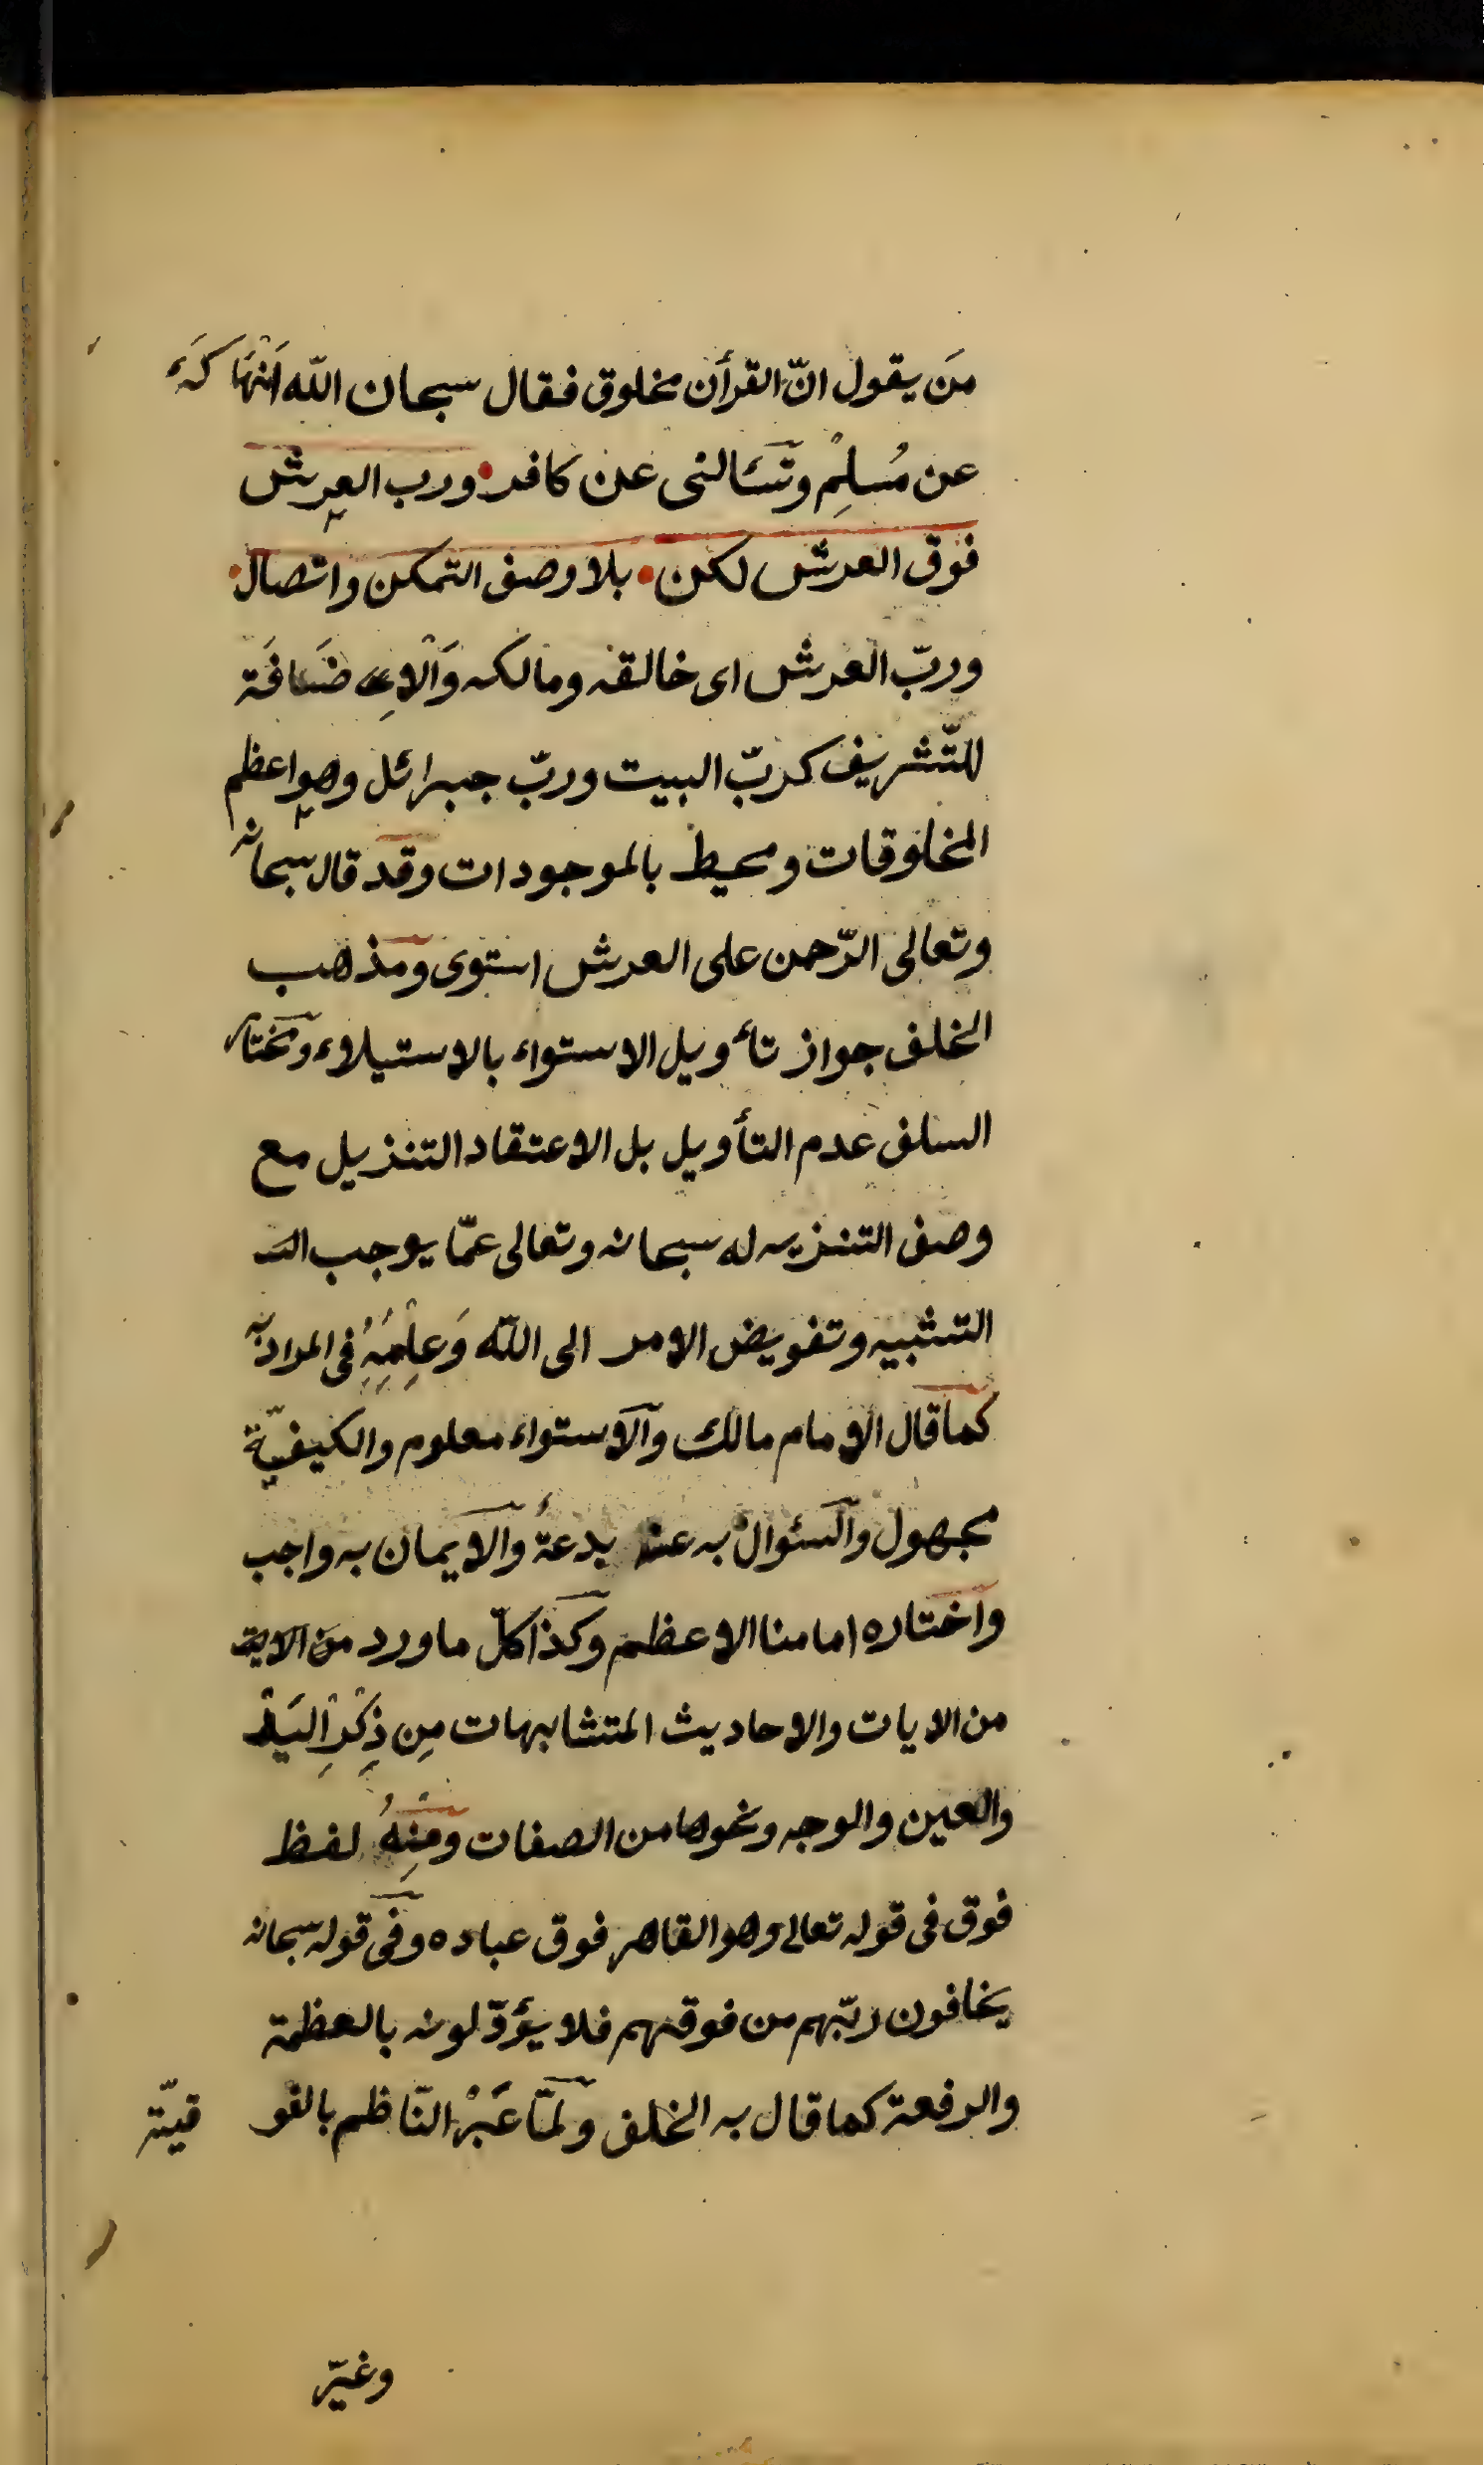 مَن يقول انّ القرأن مخلوق فقال سبحان الله اَنْهَا كَ
عن مُسلِمْ وتَسَالنى عن كافر ورب العرش
فوق العرش لكن بلا وصف التمكن واتصال
وربّ العرش اى خالقه ومالكه وَالْاِضَافَة
للتّشريف كربّ البيت وربّ جبرائل وهو اعظم
المخلوقات ومحيط بالموجودات وقد قال سبحانه
وتعالى الرّحمن على العرش استوى ومذهب
الخلف جواز تأويل الاستواء بالاستيلاء ومختار
السلف عدم التأويل بل الاعتقاد التنزيل مع
وصف التنزيه له سبحانه وتعالى عمّا يوجب الت
التشبيه وتفويض الامر الى الله وَعِلْمِهِ فى المراد به
كما قال الامام مالك والاستواء معلوم والكيفيّة
مجهول والسئوال به عنه بدعةٌ والايمان به واجب
واختاره امامنا الاعظم وكذا كلّ ما ورد من الاية
من الايات والاحاديث المتشابهات مِن ذِكْرِ اليَدْ
والعين والوجه ونحوها من الصفات ومِنْهُ لفظ
فوق فى قوله تعالى وهو القاهر فوق عباده وفى قوله سبحانه
يخافون ربّهم من فوقهم فلا يؤوّلونه بالعظمة
والرفعة كما قال به الخلف ولمّا عَبَّرْ النّاظم بالفو قيّة
وغيّر